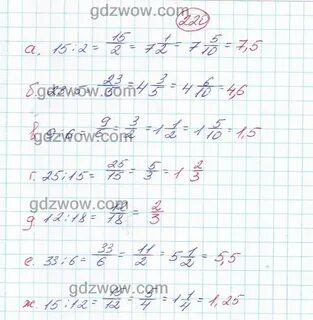 gdzwow.com
220
а. 15:2 = 15/2 = 7 1/2 = 7 5/10 = 7,5
gdzwow.com
б. 23:5 = 23/5 = 4 3/5 = 4 6/10 = 4,6
gdzwow.com
в 9:6 = 9/6 = 3/2 = 1 1/2 = 1 5/10 = 1,5
г. 25:15 = 25/15 = 5/3 = 1 2/3
gdzwow.com
д 12:18 = 12/18 = 2/3
gdzwow.com
е. 33:6 = 33/6 = 11/2 = 5 1/2 = 5,5
gdzwow.com
ж. 15:12 = 15/12 = 5/4 = 1 1/4 = 1,25